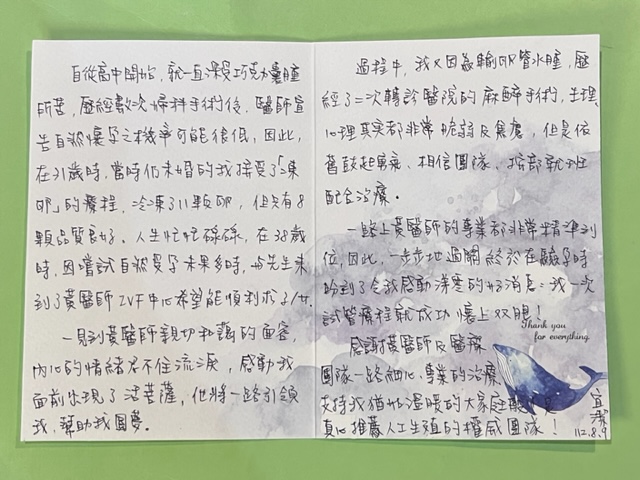 自從高中開始，就一直深受巧克力囊腫
所苦，歷經數次婦科手術後，醫師宣
告自然懷孕之機率可能很低，因此，
在31歲時，當時仍未婚的我接受了「凍
卵」的療程，冷凍了11顆卵，但只有8
顆品質良好。人生忙忙碌碌，在38歲
時，因嘗試自然受孕未果多時，與先生來
到了黃醫師IVF中心希望能順利求子/女。
一見到黃醫師親切和藹的面容，
內心的情緒忍不住流淚，感動我
面前出現了活菩薩，他將一路引領
我、幫助我圓夢。
過程中，我又因為輸卵管水腫，歷
經了二次轉診醫院的麻醉手術，生理、
心理真實都非常脆弱及焦慮，但是依
舊鼓起勇氣、相信團隊、按部就班
配合治療。
一路上黃醫師的專業都非常精準到
位，因此，一步步地過關終於在驗孕時
盼到了令我感動落淚的好消息：我一次
試管療程就成功懷上双胞！
Thank you
for everything.
感謝黃醫師及醫療
團隊一路細心、專業的治療
支持我猶如溫暖的大家庭
真心推薦人工生殖的權威團隊！
宜
112.8.9